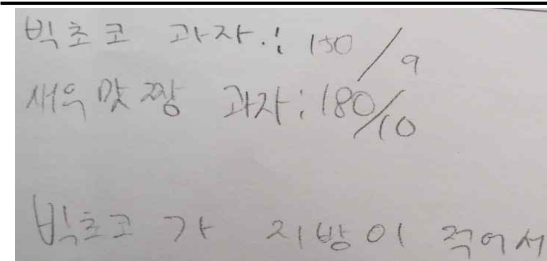 빅초코 과자.: 150/9
새우맛 짱 과자: 180/10
빅초코가 지방이 적어서